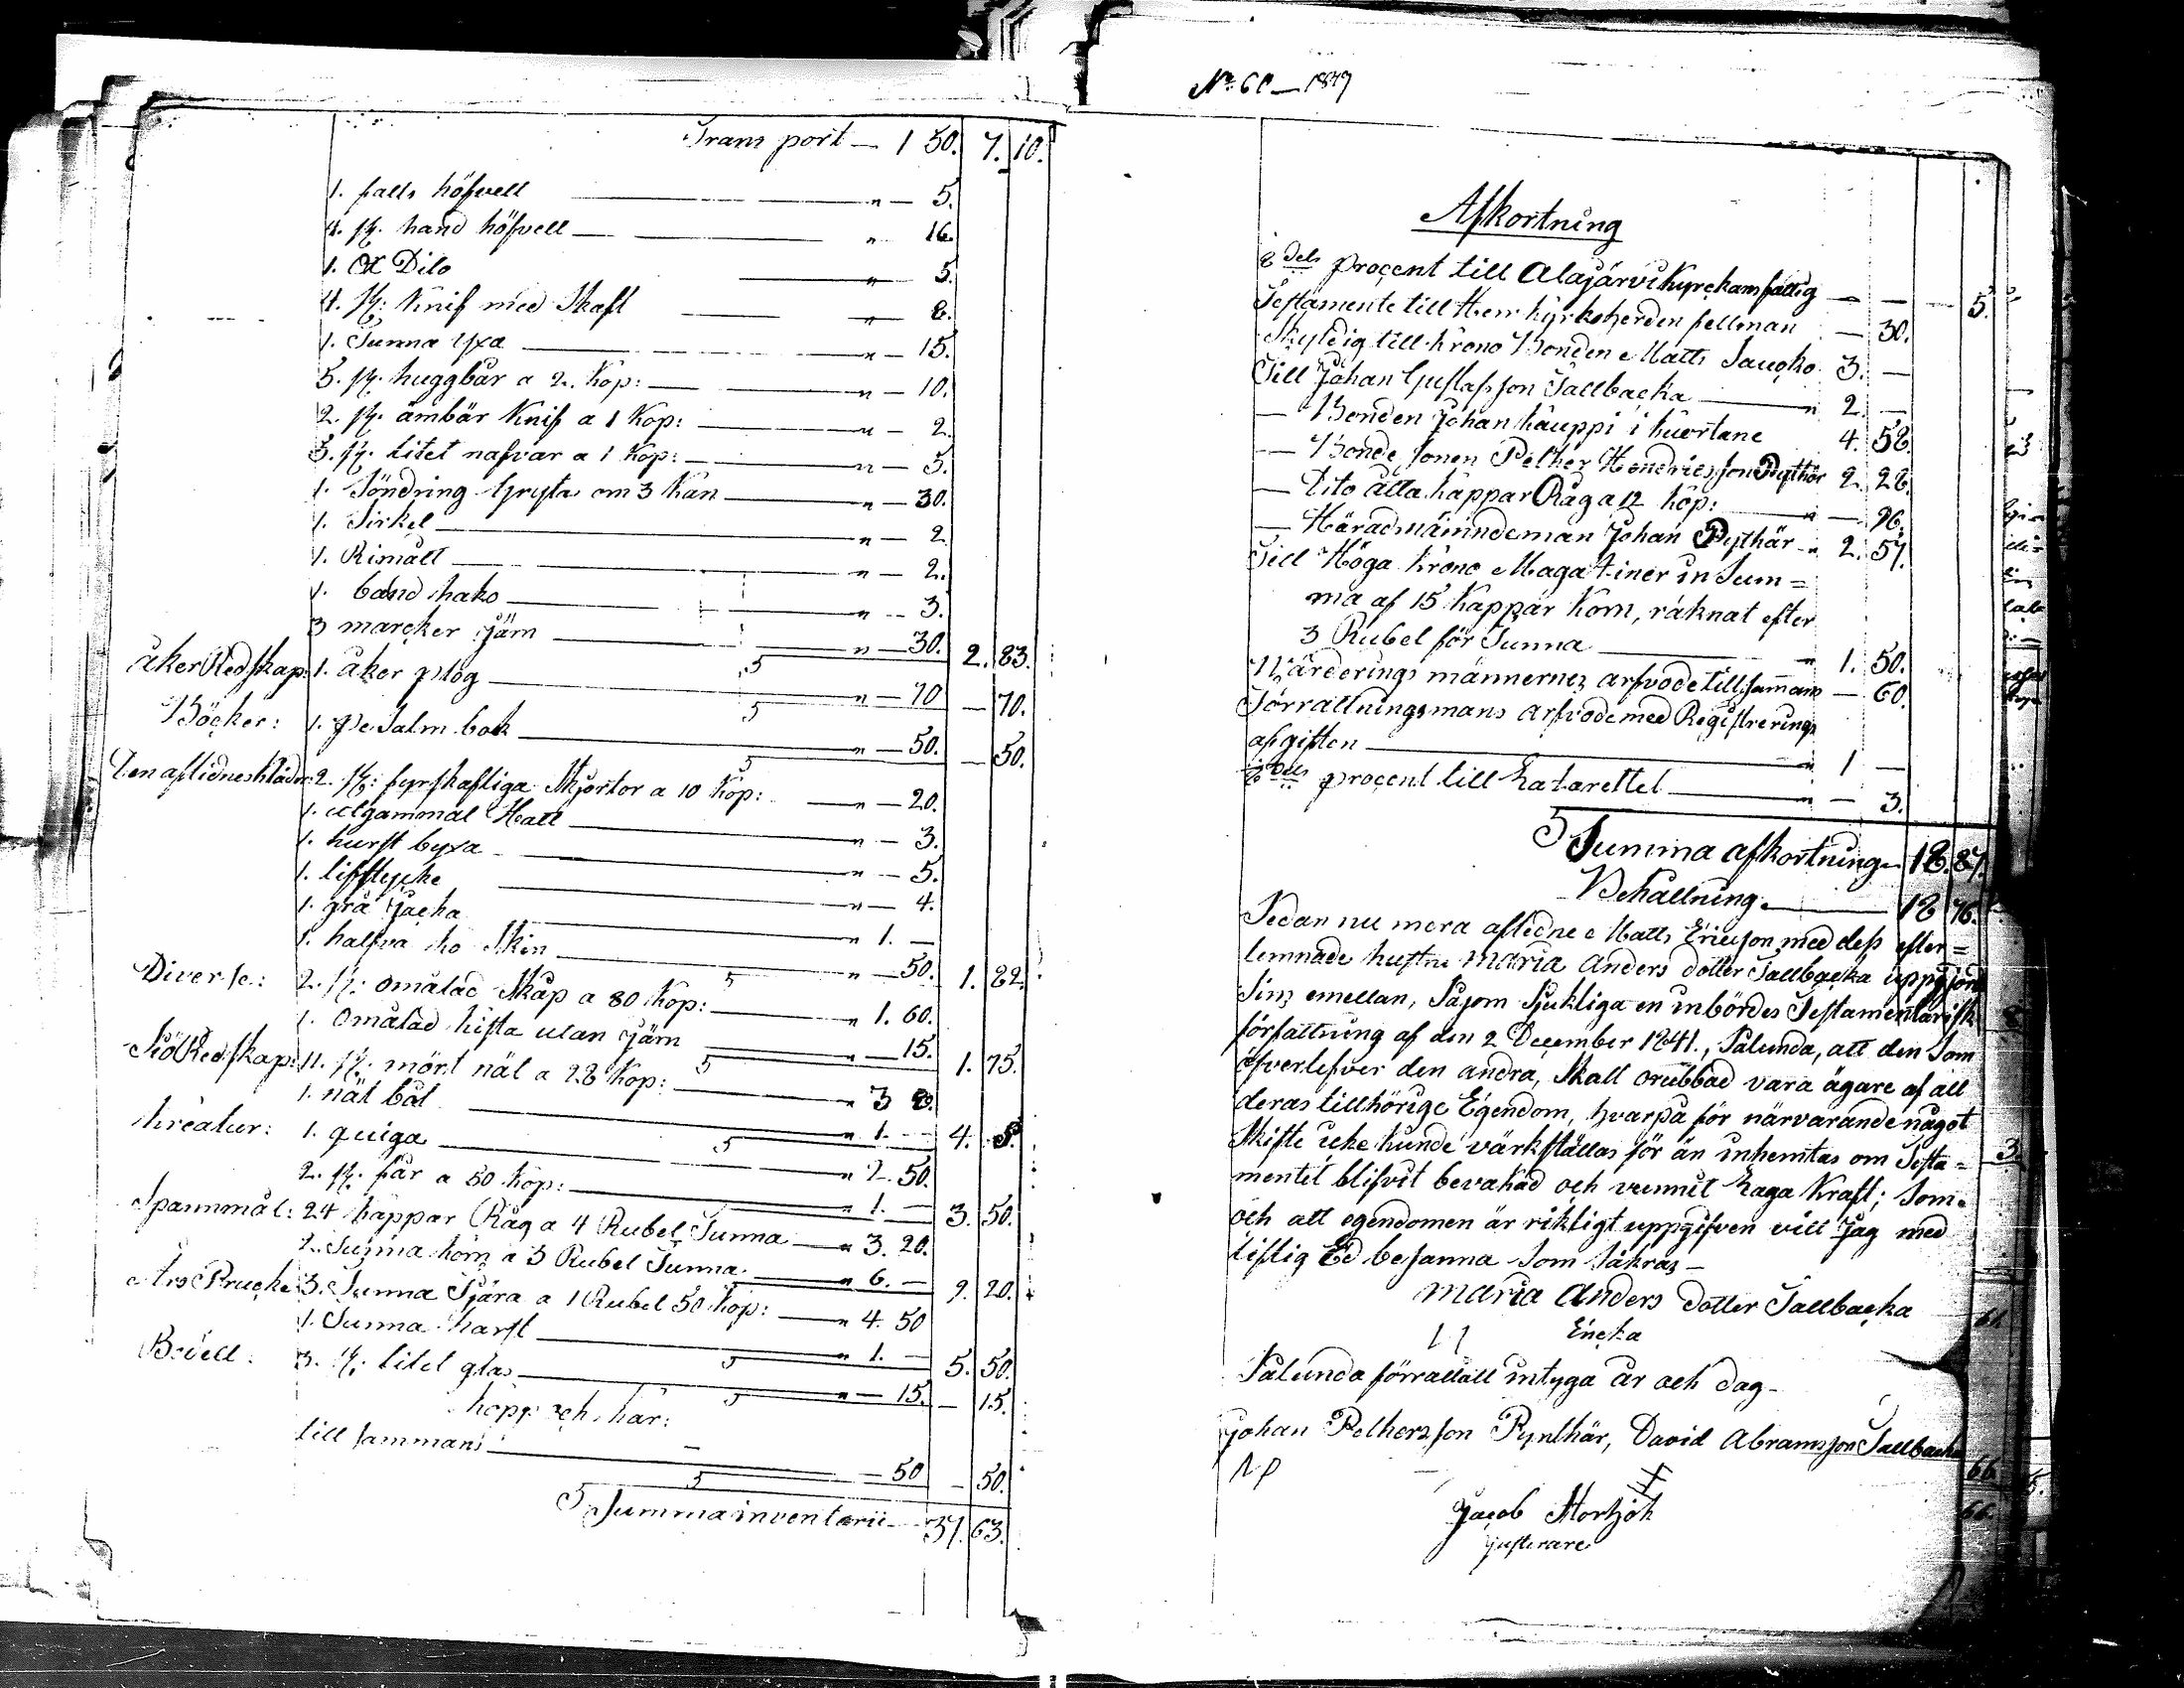 Trans port — 1 50. 7. 10.
1. falls höfvell — " — 5.
4. st. hand höfvell — " 16.
1. Ox Dito — " 5.
4. st: Knif med Skaft — " 8.
1. Tunna yxa — " — 15.
5. st. huggbär a 2. Kop: — " — 10.
2. st. ämbär Knif a 1 Kop: — " — 2.
5. st. litet nafvar a 1 Kop: — " — 5.
1. Söndring Gryta om 3 Kan — " — 30.
1. Sirkel — " — 2
1. Rimått — " — 2.
1. band hako — " — 3.
3 marcker Järn — " — 30. 2. 83.
åker Redskap: 1. åker plog — " — 70 — 70.
Böcker: 1. Psalm bok — " — 50. — 50.
Den aflidnes kläder: 2. st: fyrskaftiga Skjortor a 10 Kop: — " — 20.
1. utgammal Hatt — " — 3.
1. hurst byxa — " — 5.
1. lifstycke — " — 4.
1. grå Jacka — " 1. —
1. halfva ko Skin — " — 50. 1. 82.
Diverse: 2. st: omålad Skåp a 80 Kop: — " 1. 60.
1. omålad kista utan Järn — " — 15. 1. 75.
Siö Redskap: 11. st: mört nät a 28 Kop: — " 3 8.
1. nät båt — " 1. — 4. 8.
Kreatur: 1. quiga — " 2. 50.
2. st. får a 50 Kop: — " 1. — 3. 50.
Spannmål: 24 kappar Råg a 4 Rubel Tunna — " 3. 20.
2. Tunna korn a 3 Rubel Tunna — " 6. — 9. 20.
Års Prucke 3. Tunna Tjära a 1 Rubel 50 Kop: — " 4. 50
1. Tunna harst — " 1. — 5. 50.
3. st: litet glas — " — 15. — 15.
till sammans — 50 — 50.
Summa inventarii — 37. 63.
No: 60 — 1849
Afkortning
8 dels procent till Alajärvi Kyrckans fattig — — 5.
Testamente till Herr Kyrkoherden fellman — 30.
Skyldig till krono Bonden Matts Saucko 3. —
Till Johan Gustafsson Sallbacka — " 2. —
— Bonden Johan Kauppi i Kuortane 4. 58.
— Bonde Sonen Petker Hendricsson Pytthär 2. 28.
— Dito åtta kappar Råg a 12 kop: — " — 96.
— Häradmäinndeman Johan Pythär — " 2. 57.
Till Höga Krono Magatziner in Sum=
ma af 15 Kappar Korn, räknat efter
3 Rubel för Tunna — " 1. 50.
Wärderings männernes arfvode tillsammans — 60.
Förrättningsmans arfvode med Registrerings
afgiften — " 1 —
8 dels procent till — " — 3.
Summa afkortning — 18. 87.
Behållning — 18 76.
Sedan nu mera aflidne Matts Ericsson med dess efter=
lemnade hustru Maria Anders dotter Sallbacka uppgjord
Sins emellan, Såsom Sjukliga en inbördes Testamentarisk
författning af den 2 December 1841., Sålunda, att den Som
öfverlefver den andra, Skall orubbad vara ägare af all
deras tillhörige Egendom, hvarpå för närvarande något
Skifte icke kunde värkställas för än inhemtas om Testa=
mentet blifvit bevakad och vunnit Laga Kraft; Som
och att egendomen är riktigt uppgifven vill Jag med
liflig Ed besanna Som Säkras —
Maria Anders dotter Sallbacka
Encka
Sålunda förrättatt intyga år och dag —
Johan Petkersson Pynthär, David Abramsson Sallbacka
Jacob Stortzöt
justerare